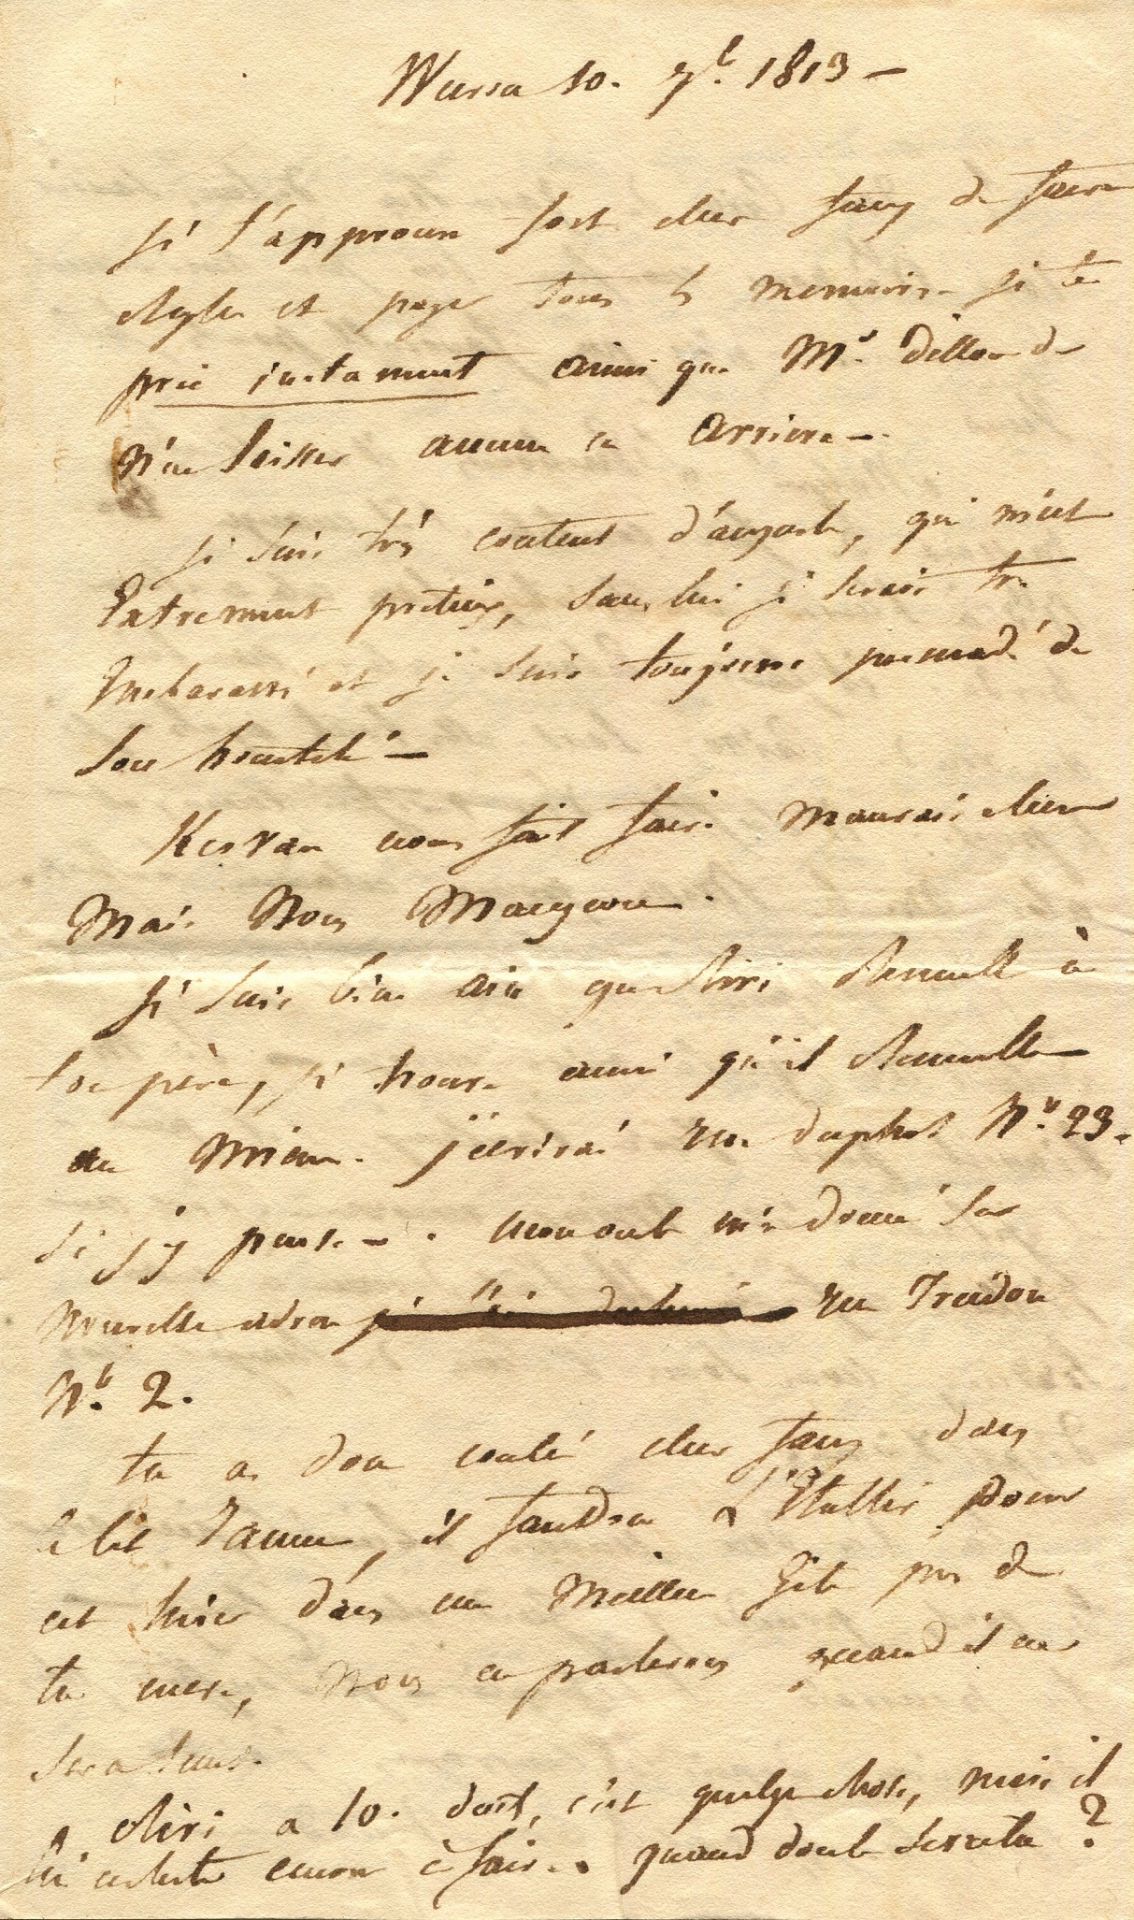 Wursa 10. 7b. 1813 —
Je t'approuve fort cher fanÿ de faire
regler et payer tous les memoires je te
prie instament ainsi que Mr. dillon de
n'en laisser aucun en arriere —.
je suis très content d'auguste, qui m'est
Extremement pretieux, sans lui je serais très
Embarassé et je suis toujours persuadé de
son honeteté —
Kervan nous fait faire mauvaise chere
Mais Nous Mangeons.
je suis bien aise que ressemble à
son père, je trouve aussi qu'il ressemble
au Mien. j'ecrirai rue duphot No. 23.
si j'y pense —. m'a donné sa
nouvelle adresse rue Traidon
No. 2.
tu as donc couché cher fanÿ dans
le lit Jaune, il faudra t'Etablir pour
cet hiver dans un Meilleur Gite pres de
ta mere, Nous en parlerons quand il en
sera tems.
a 10. dents, c'est quelque chose, mais il
lui en reste encore à faire. quand donc sera-t-on ?